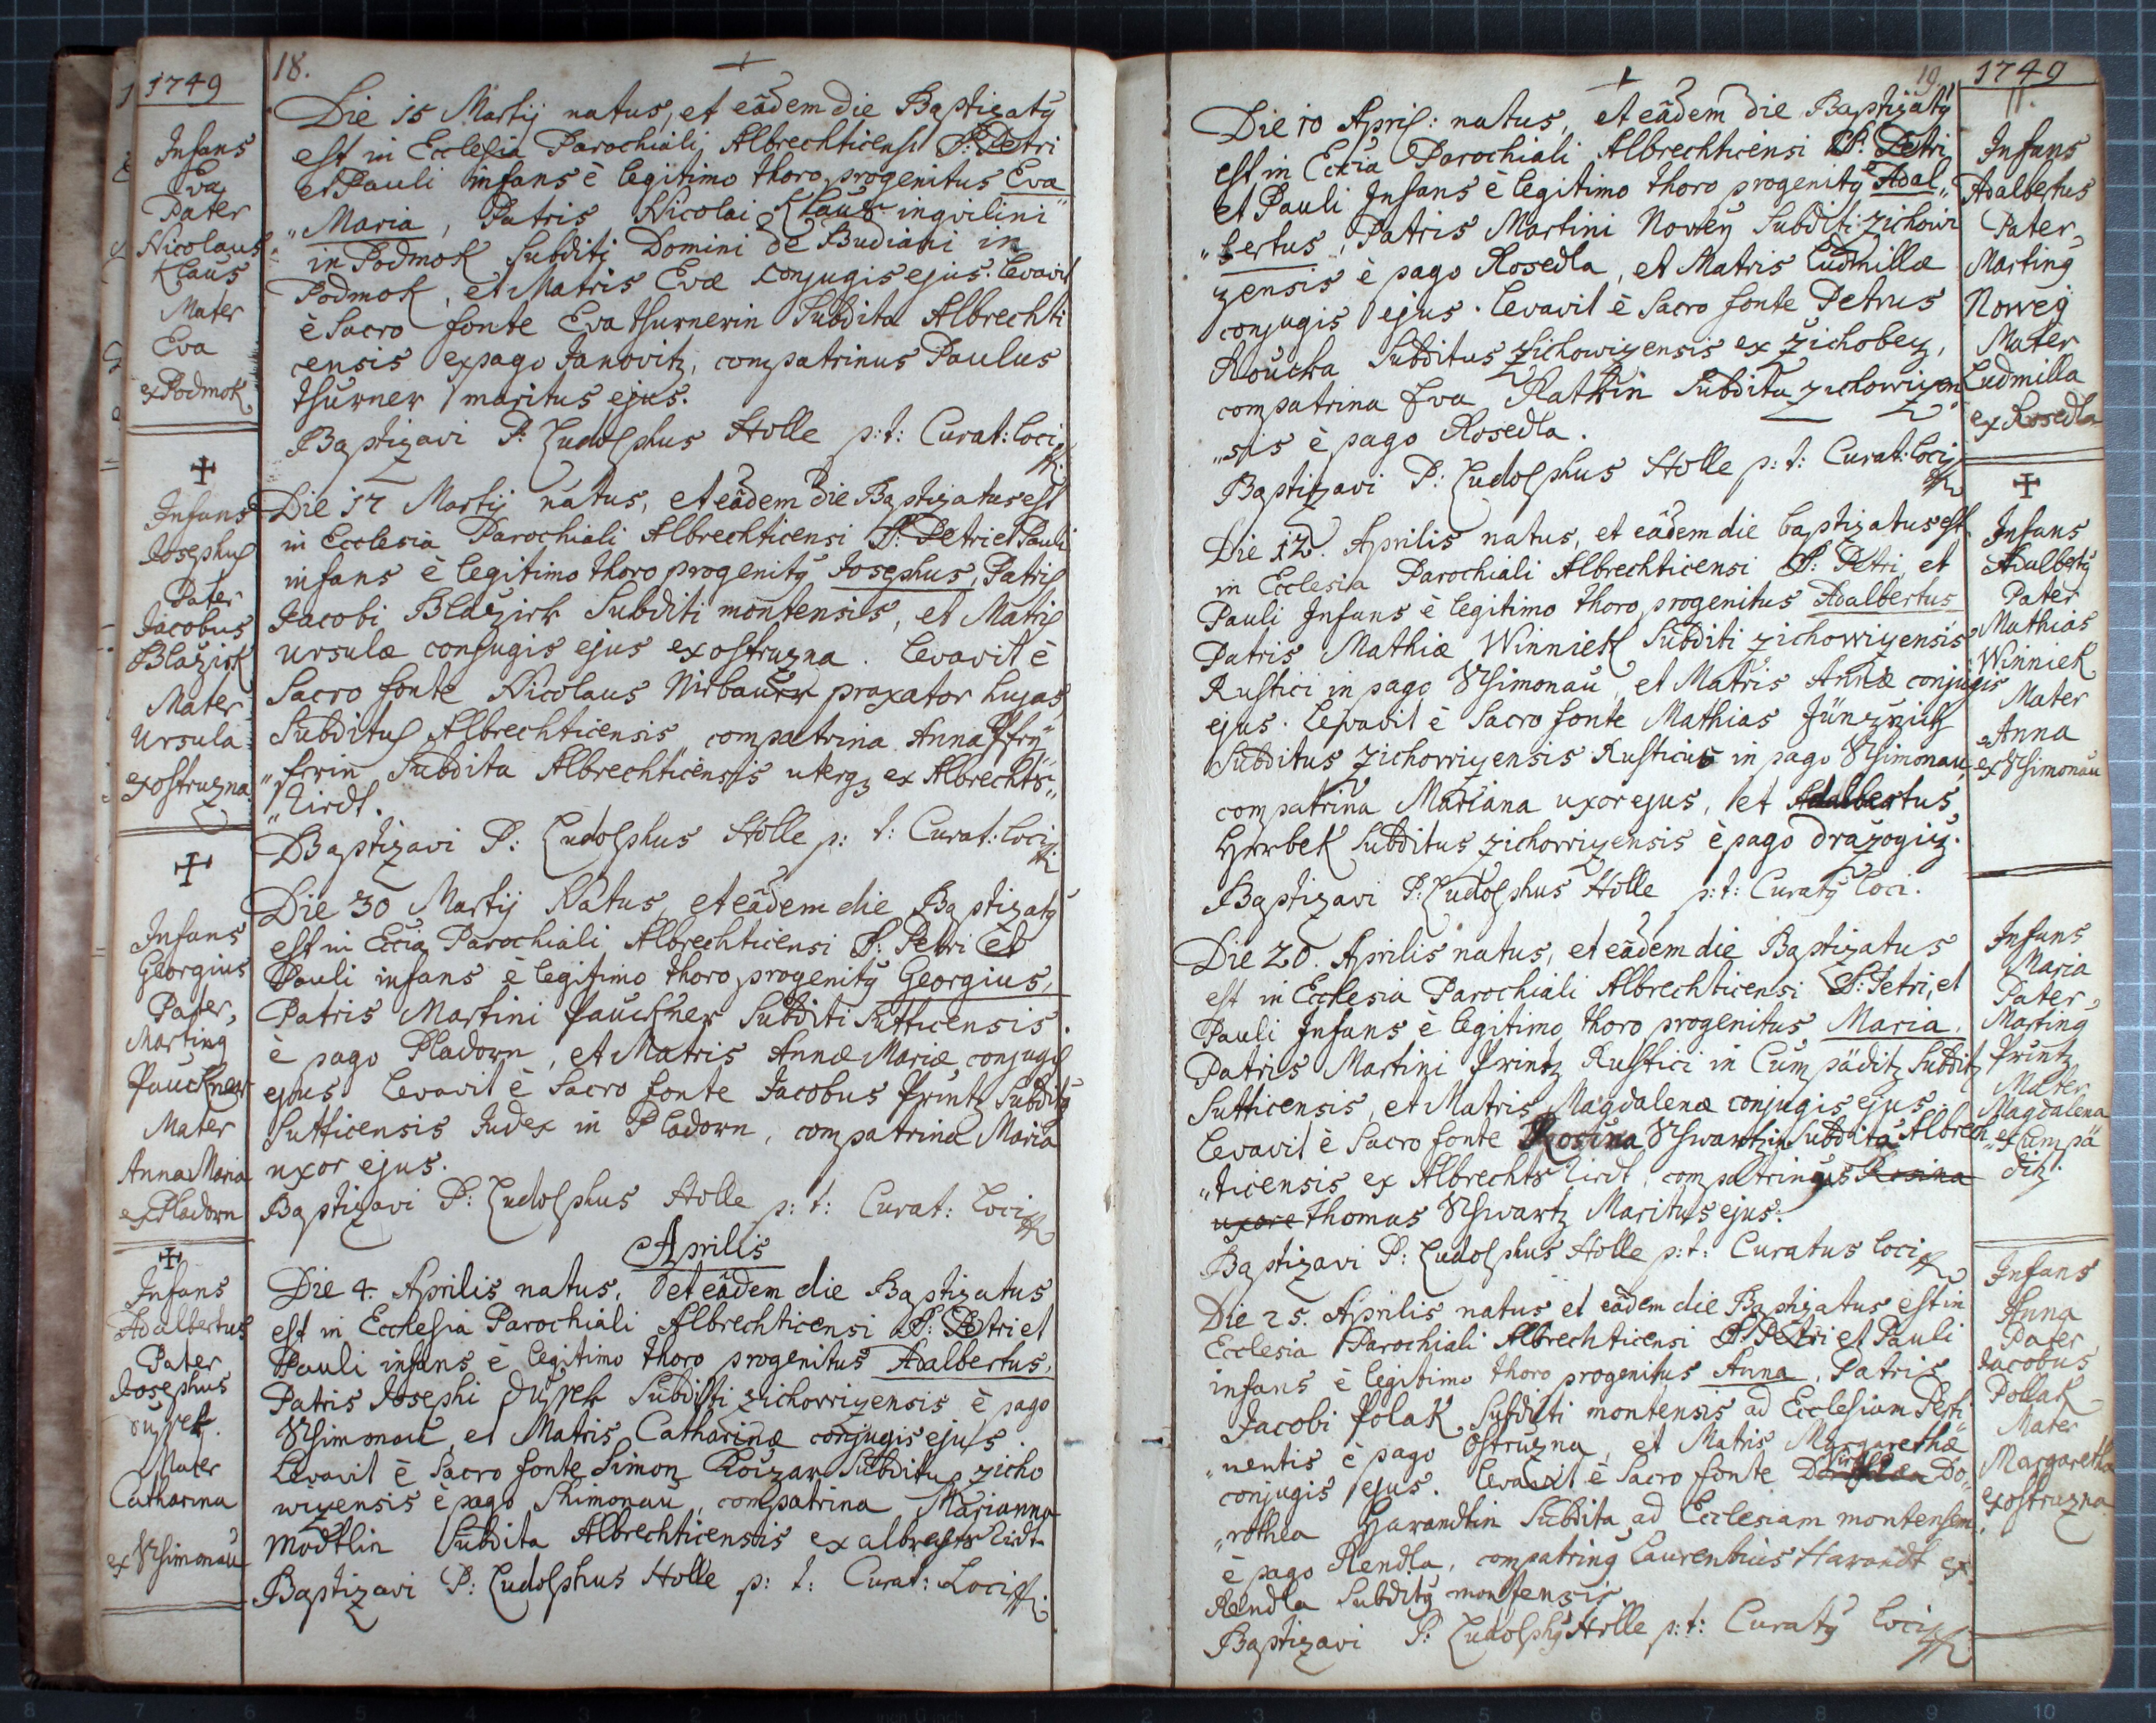 1749
18.
Infans
Eva
Pater
Nicolaus
Klaus
Mater
Eva
ex Podmok
Die 15 Martij natus, et eâdem die Baptizatq
est in Ecclesia Parochiali Albrechticensi S: Petri
et Pauli infans è legitimo thoro progenitus Eva
„Maria, Patris Nicolai Klaus inqvilini
in Podmok Subditi Domini de Budiani in
Podmok, et Matris Evæ conjugis ejus. Levavit
è Sacro fonte Eva thurnerin Subdita Albrechti
censis ex pago Janovitz, compatrinus Paulus
thurner maritus ejus.
Baptizavi P: Ludolphus Holle p: t: Curat: loci
Infans
Josephus
Pater
Jacobus
Blažick
Mater
Ursula
ex ostruzna
Die 17 Martij natus, et eâdem die Baptizatus est
in Ecclesia Parochiali Albrechticensi S: Petri et Pauli
infans è legitimo thoro progenitq Josephus, Patris
Jacobi Blažick Subditi montensis, et Matris
Ursulæ conjugis ejus ex ostruzna. Levavit è
Sacro fonte Nicolaus Nirbauer praxator hujas
Subditus Albrechticensis compatrina Anna
Subdita Albrechticensis uterq3 ex Albrechts„
„Rirdt.
Baptizavi P: Ludolphus Holle p: t: Curat: loci
Infans
Georgius
Pater,
Martinq
Pauckner
Mater
Anna Maria
ex Pladorn
Die 30 Martij Natus, et eâdem die Baptizatq
est in Eccia Parochiali Albrechticensi S: Petri et
Pauli infans è legitimo thoro progenitq Georgius,
Patris Martini Pauckner Subditi Sutticensis
è pago Pladorn, et Matris Annæ Mariæ conjugis
ejus Levavit è Sacro fonte Jacobus Printz Subditq
Sutticensis Judex in Pladorn, compatrina Maria
uxor ejus.
Baptizavi P: Ludolphus Holle p: t: Curat: Loci
Aprilis
Infans
Adalbertus
Pater
Josephus
Dussek.
Mater
Catharina
ex Schimonau
Die 4. Aprilis natus, et eâdem die Baptizatus
est in Ecclesia Parochiali Albrechticensi S: Petri et
Pauli infans è legitimo thoro progenitus Adalbertus,
Patris Josephi Dussek Subditi zichowizensis è pago
Schimonau, et Matris Catharinæ conjugis ejus.
Levavit è Sacro fonte Simon Rouzar Subditus zicho
wizensis è pago Shimonau, compatrina Marianna
Modtlin Subdita Albrechticensis ex albrechts Rirdt
Baptizavi P: Ludolphus Holle p: t: Curat: Loci
19
1749
Die 10 April: natus, et eâdem die Baptizatq
est in Eccia Parochiali Albrechticensi S: Petri
et Pauli Infans è legitimo thoro progenitq Adal„
„bertus, Patris Martini Nowey Subditi zichowi
zensis è pago Rosedla, et Matris Ludmillæ
conjugis ejus. Levavit è Sacro fonte Petrus
Roucka Subditus zichowizensis ex zichobez,
compatrina Eva Rathin Subdita zichowizen
„sis è pago Rosedla.
Baptizavi P: Ludolphus Holle p: t: Curat: loci
Infans
Adalbertus
Pater,
Martinq
Noweg
Mater
Ludmilla
ex Rosedla
Die 12. Aprilis natus, et eâdem die baptizatus est
in Ecclesia Parochiali Albrechticensi S: Petri, et
Pauli Infans è legitimo thoro progenitus Adalbertus
Patris Mathiæ Winniek Subditi zichowizensis
Rustici in pago Schimonau, et Matris Annæ conjugis
ejus. Levavit è Sacro fonte Mathias
Subditus zichowizensis Rusticus in pago Schimonau,
compatrina Mariana uxor ejus, et Adalbertus
Hrrbek Subditus zichowizensis è pago drazogiz.
Baptizavi P: Ludolphus Holle p: t: Curatq loci.
Infans
Adalbertq
Pater
Mathias
Winniek
Mater
Anna
ex Schimonau
Die 20. Aprilis natus, et eâdem die Baptizatus
est in Ecclesia Parochiali Albrechticensi S: Petri, et
Pauli Infans è legitimo thoro progenitus Maria,
Patris Martini Printz Rustici in Cumpäditz Subditi
Sutticensis, et Matris Magdalenæ conjugis ejus.
Levavit è Sacro fonte Rosina Schwartzin Subdita Albrech
„ticensis ex Albrechts Rirdt, compatrinus Rosina
uxore thomas Schwartz Maritus ejus.
Baptizavi P: Ludolphus Holle p: t: Curatus loci
Infans
Maria
Pater,
Martinq
Printz
Mater
Magdalena
ex Cumpä
ditz.
Die 25. Aprilis natus et eâdem die Baptizatus est in
Ecclesia Parochiali Albrechticensi S: Petri et Pauli
infans è legitimo thoro progenitus Anna, Patris
Jacobi Polak Subditi montensis ad Ecclesiam Perti„
„nentis è pago ostruzna, et Matris Margarethæ
conjugis ejus. Levavit è Sacro fonte Do„
„rothea Harandtin Subdita ad Ecclesiam montensem
è pago Rendla, compatrinq Laurentius Harandt ex
Rendla Subditq montensis.
Baptizavi P: Ludolphq Holle p: t: Curatq loci
Infans
Anna
Pater
Jacobus
Pollak
Mater
Margaretha
ex ostruzna